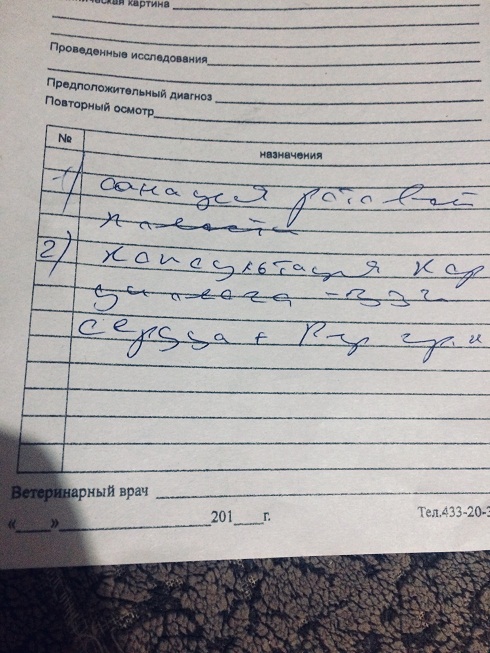 ническая картина
Проведенные исследования
Предположительный диагноз
Повторный осмотр
№ назначения
1) санация ротовой
полости
2) консультация кар
диолога - ЭЭГ
сердца + гр
Ветеринарный врач
« » 201 г. Тел.433-20-3